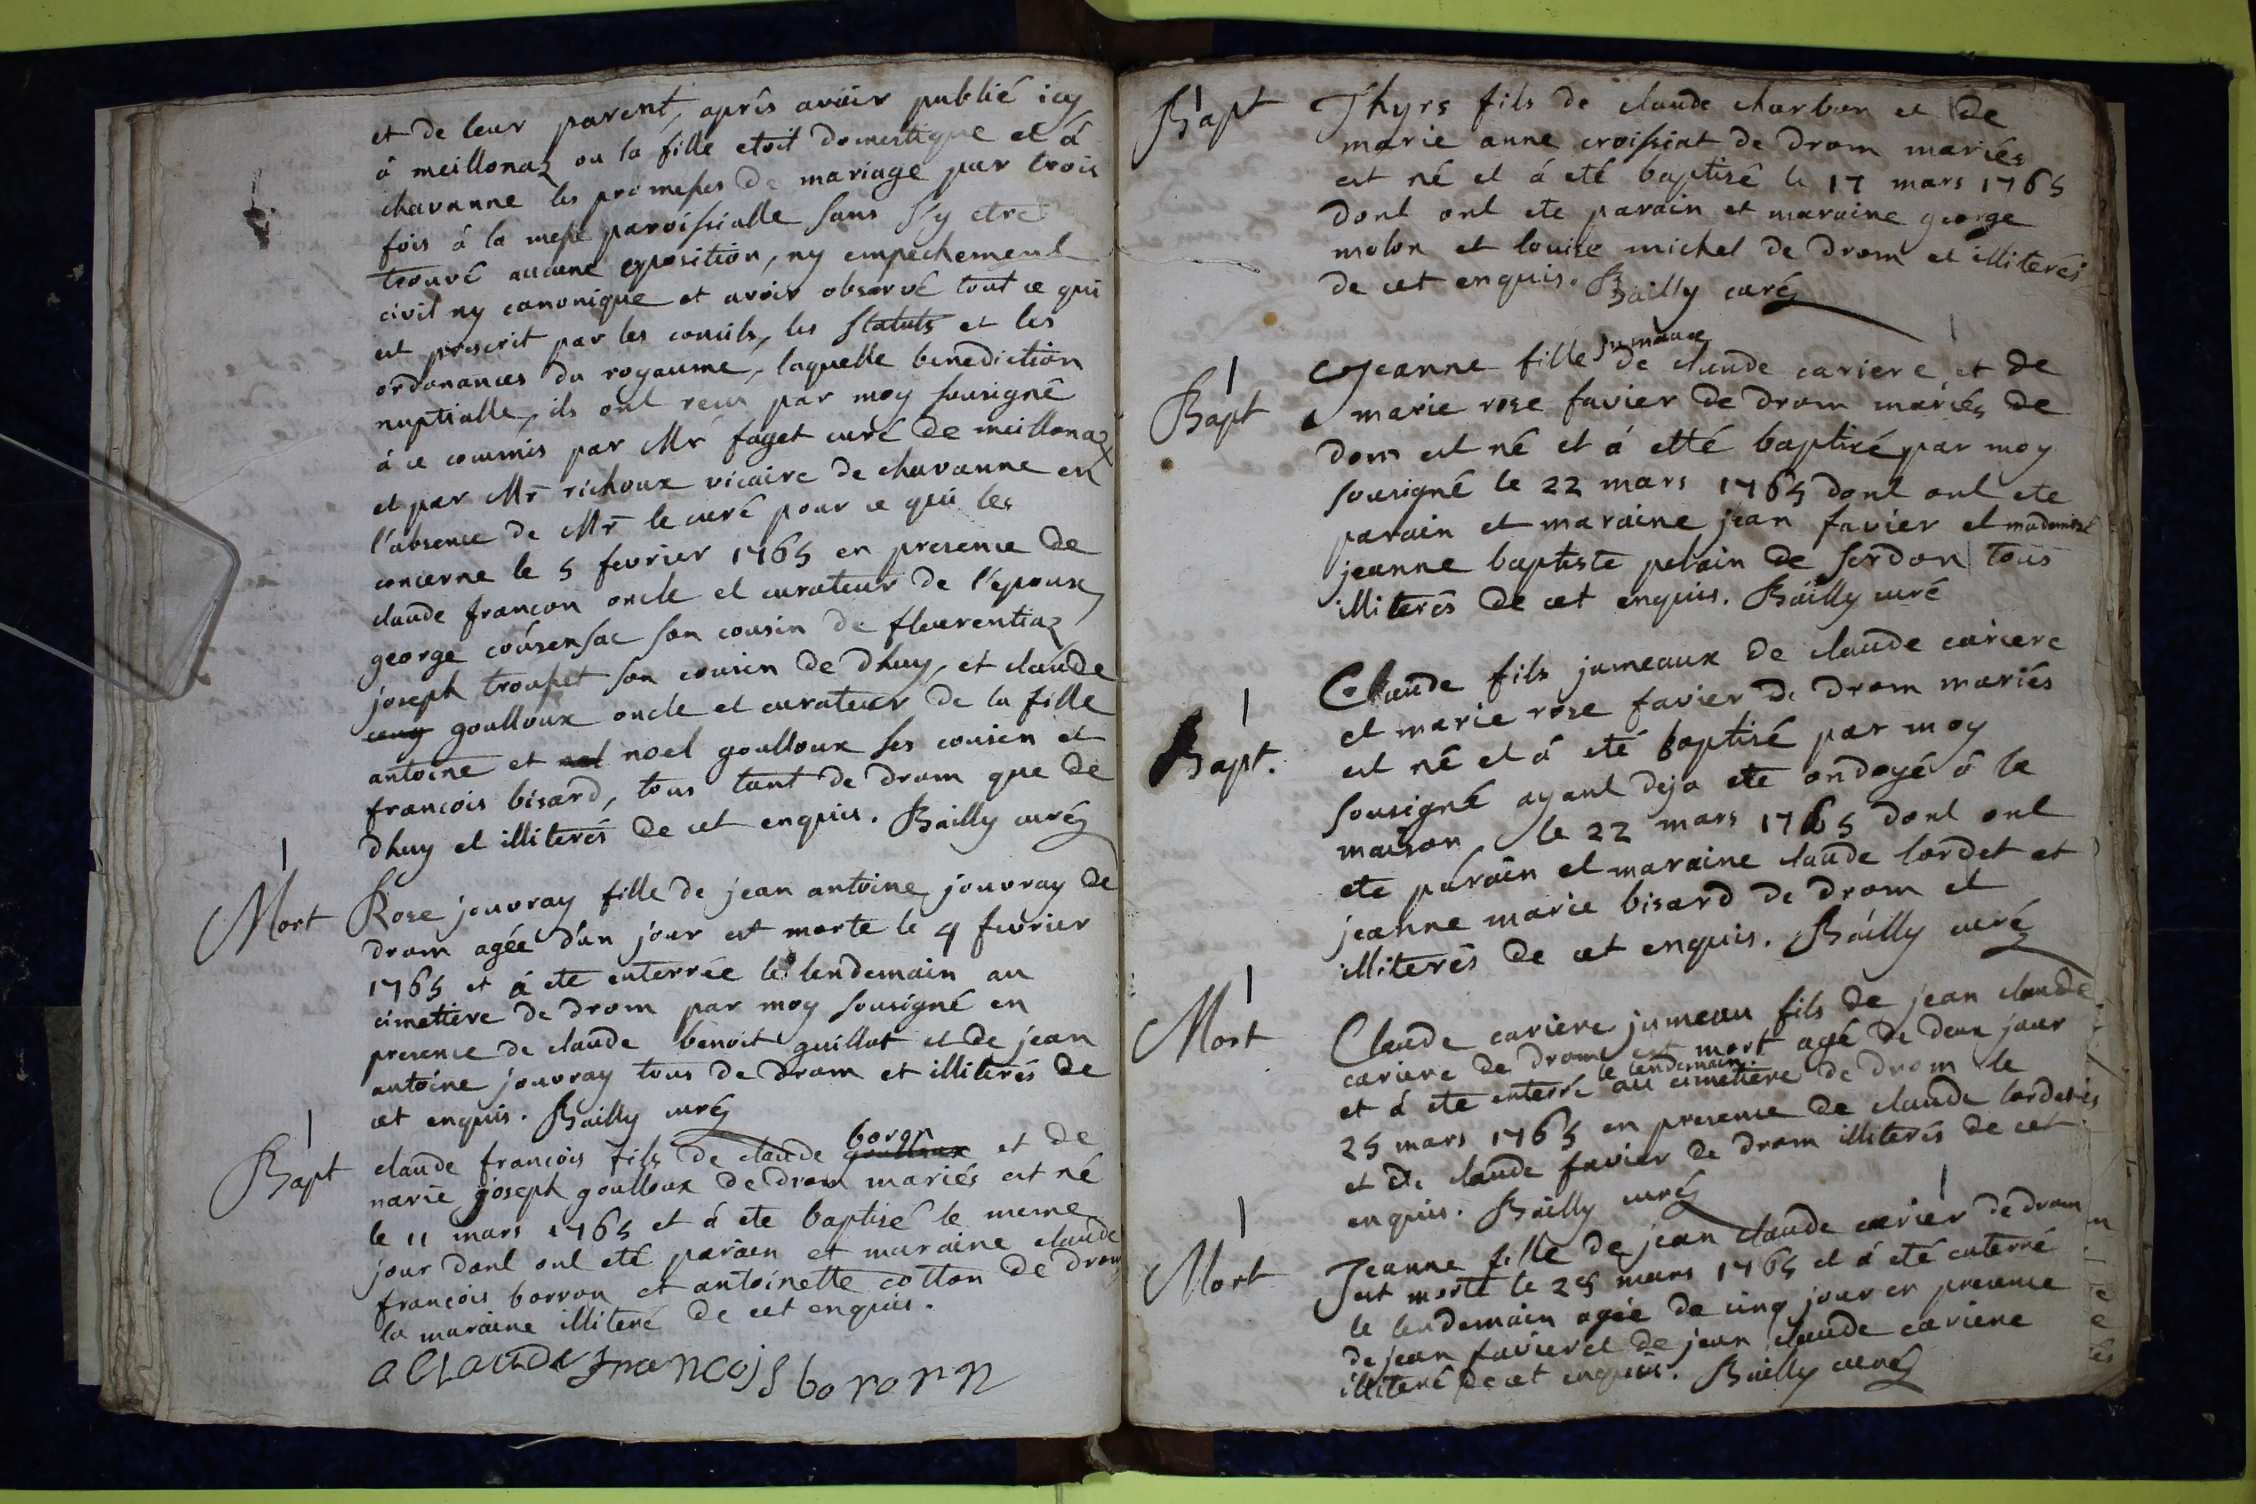 et de leur parent, aprês avoir publié icy
à meillonaz ou la fille etoit domestique et à
chavanne les promesses de mariage par trois
fois à la messe paroissialle sans s'y etre
trouvé aucune oposition, ny empechement
civil ny canonique et avoir observé tout ce qui
est prescrit par les concils, les statuts et les
ordonances du royaume, laquelle benediction
nuptialle, ils ont reçu par moy sousigné
à ce commis par Mr faget curé de meillonaz
et par Mr richoux vicaire de chavanne en
l'absence de Mr le curé pour ce qui les
concerne le 5 fevrier 1765 en presence de
claude françon oncle et curateur de l'epoux
george cousensac son cousin de fleurentiaz
joseph troupet son cousin de dhuy, et claude
goulloux oncle et curateur de la fille
antoine et noel goulloux ses cousin et
francois bisard, tous tant de drom que de
dhuy et illiterés de cet enquis. Bailly curé
Mort
Rose jouvray fille de jean antoine jouvray de
drom agée d'un jour est morte le 4 fevrier
1765 et á ete enterrée le lendemain au
cimetiere de drom par moy sousigné en
presence de claude benoit guillot et de jean
antoine jouvray tous de drom et illiterés de
cet enquis. Bailly curé
Bapt
claude françois fils de claude goulloux boron et de
marie joseph goulloux de drom mariés est né
le 11 mars 1765 et á ete baptisé le meme
jour dont ont eté parain et maraine claude
françois borron et antoinette cotton de drom
la maraine illiteré de cet enquis.
a claude francois boronn
Bapt
Thyrs fils de claude charbon et de
marie anne croissiat de drom mariés
est né et á eté baptisé le 17 mars 1765
dont ont ete parain et maraine george
molon et louise michel de drom et illiterés
de cet enquis. Bailly curé
Bapt
Jeanne fille jumeaux de claude cariere et de
marie rose favier de drom mariés de
dom est né et á etté baptisé par moy
sousigné le 22 mars 1765 dont ont ete
parain et maraine jean favier et
jeanne baptiste pelrain de serdon tous
illiterés de cet enquis. Bailly curé
Bapt.
Claude fils jumeaux de claude cariere
et marie rose favier de drom mariés
est né et á eté baptisé par moy
sousigné ayant deja ete ondoyé á la
maison le 22 mars 1765 dont ont
ete parain et maraine claude lordet et
jeanne marie bisard de drom et
illiterés de cet enquis. Bailly curé
Mort
Claude cariere jumeau fils de jean claude
cariere de drom est mort agé de deux jour
et á ete enterré le lendemain au cimetiere de drom le
25 mars 1765 en presence de claude lordet
et de claude favier de drom illiterés de cet
enquis. Bailly curé
Mort
Jeanne fille de jean claude carier de drom
est morte le 25 mars 1765 et á eté enterré
le lendemain agée de cinq jour en presence
de jean favier et de jean claude cariere
illiteré de cet enquis. Bailly curé